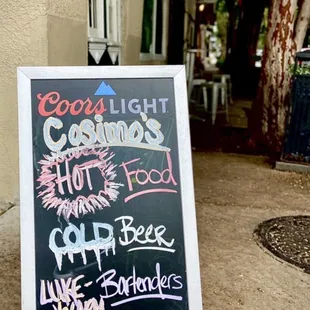 Coors LIGHT
Cosimo's
HOT Food
COLD Beer
LUKE-WARM Bartenders